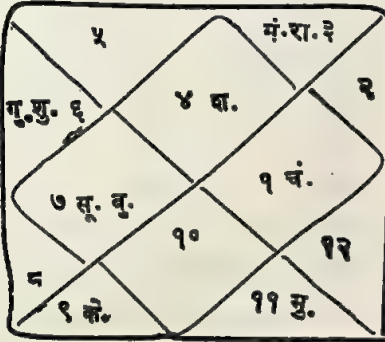 ५
मं.रा.३
२
गु.शु. ६
४ श.
१ चं.
७ सू. बु.
१०
१२
८
९ के.
११ मु.